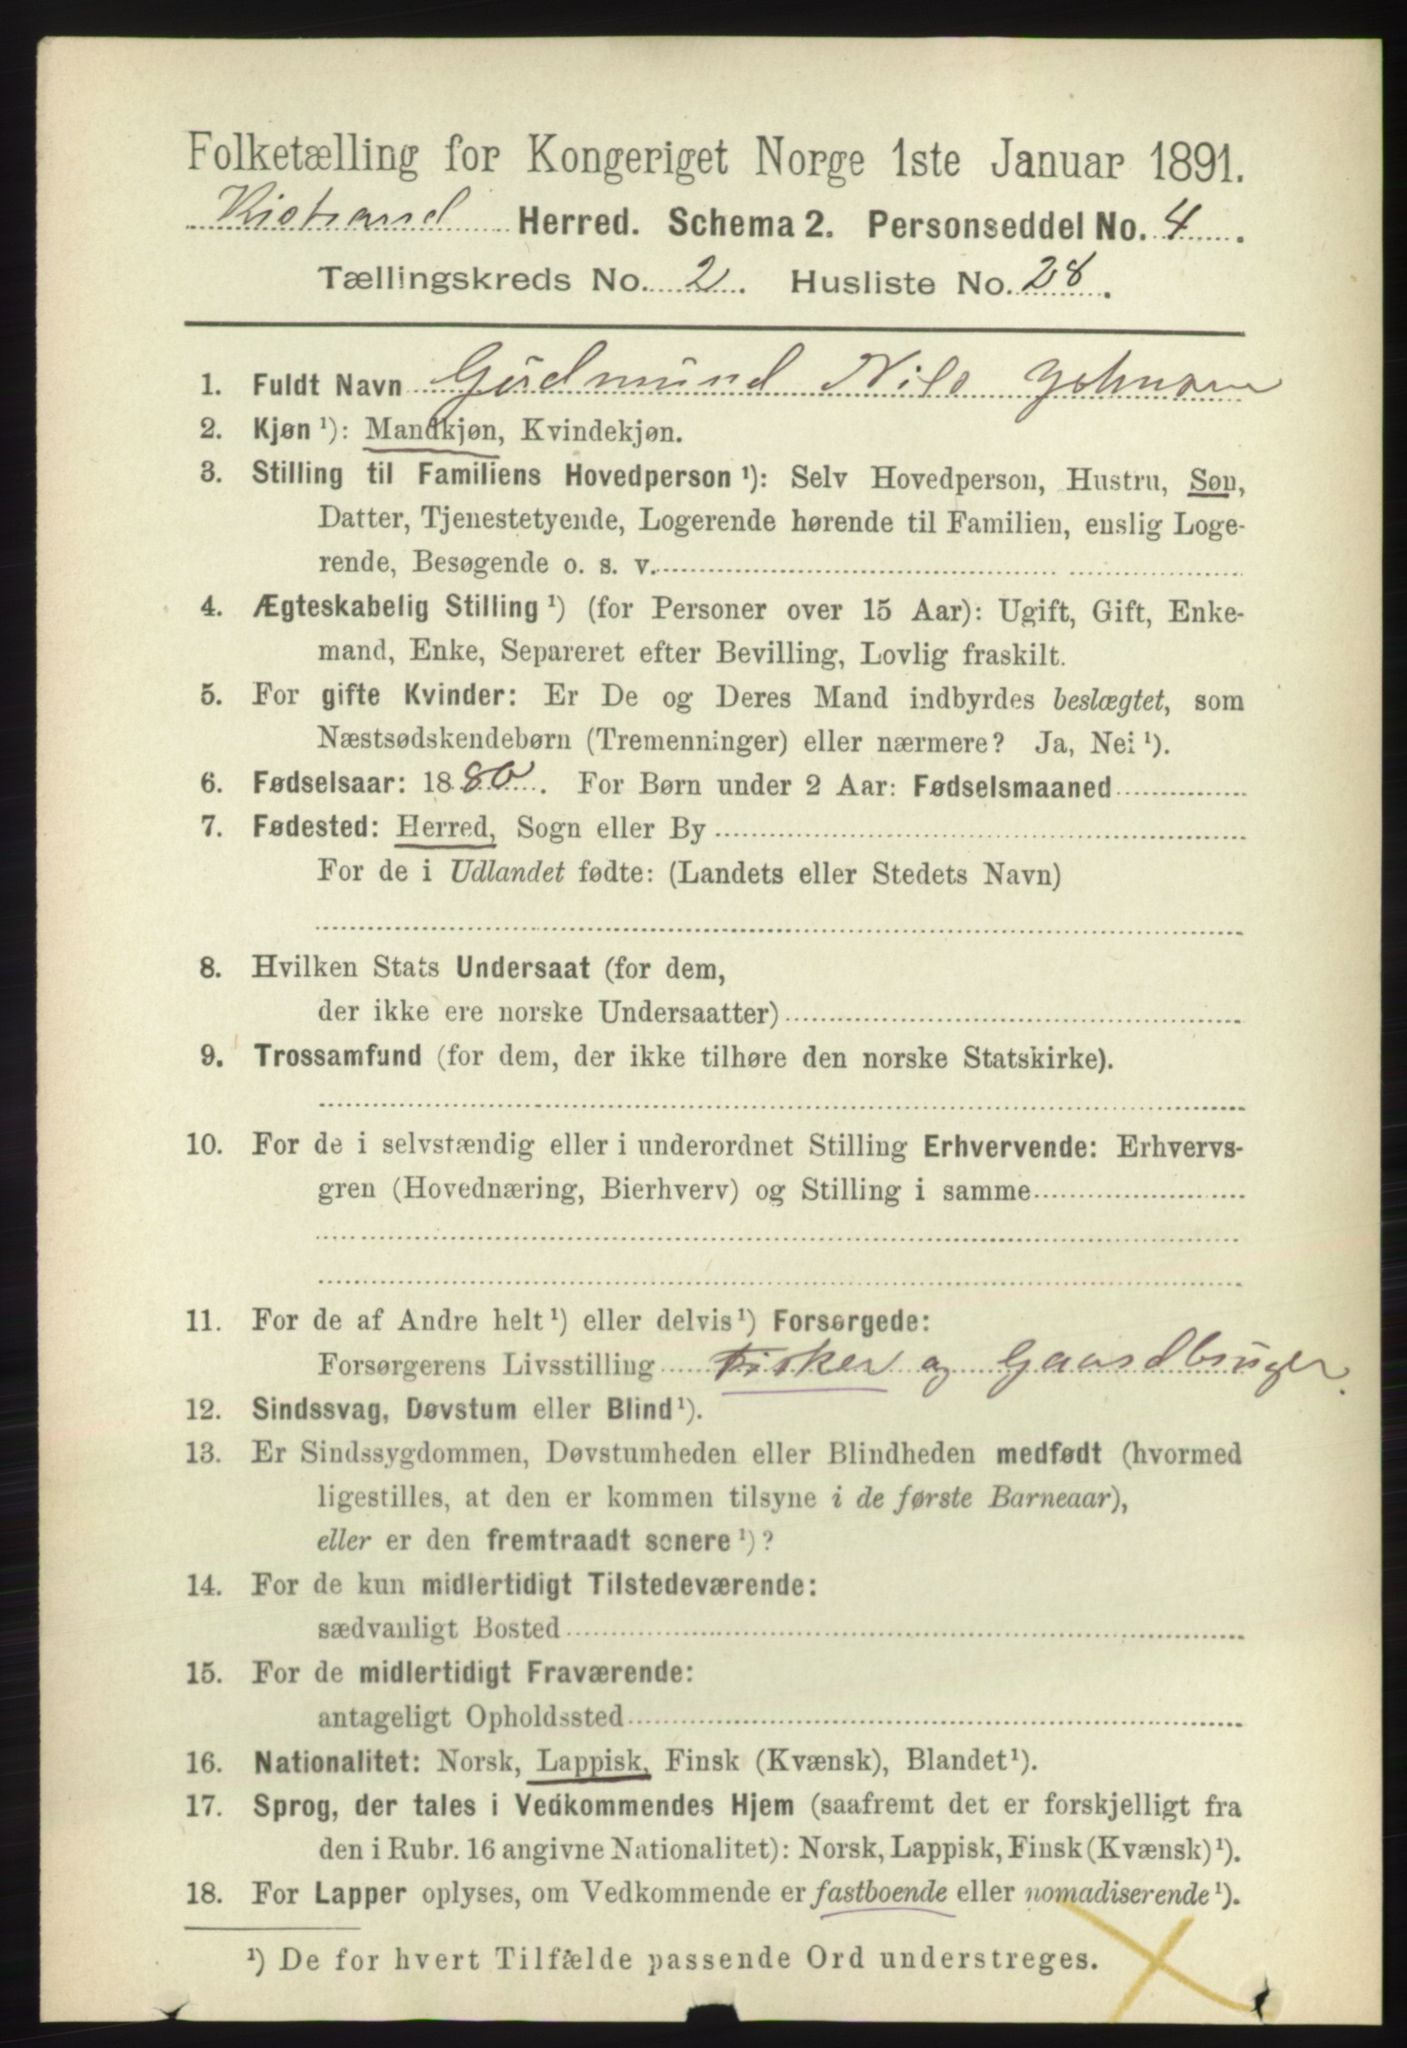 Folketælling for Kongeriget Norge 1ste Januar 1891.
Kistrand Herred. Schema 2. Personseddel No. 4.
Tællingskreds No. 2. Husliste No. 28.
1. Fuldt Navn Gudmund Nils Johnsen
2. Kjøn ¹): Mandkjøn, Kvindekjøn.
3. Stilling til Familiens Hovedperson ¹): Selv Hovedperson, Hustru, Søn,
Datter, Tjenestetyende, Logerende hørende til Familien, enslig Loge-
rende, Besøgende o. s. v.
4. Ægteskabelig Stilling ¹) (for Personer over 15 Aar): Ugift, Gift, Enke-
mand, Enke, Separeret efter Bevilling, Lovlig fraskilt.
5. For gifte Kvinder: Er De og Deres Mand indbyrdes beslægtet, som
Næstsødskendebørn (Tremenninger) eller nærmere? Ja, Nei ¹).
6. Fødselsaar: 1880. For Børn under 2 Aar: Fødselsmaaned
7. Fødested: Herred, Sogn eller By
For de i Udlandet fødte: (Landets eller Stedets Navn)
8. Hvilken Stats Undersaat (for dem,
der ikke ere norske Undersaatter)
9. Trossamfund (for dem, der ikke tilhøre den norske Statskirke).
10. For de i selvstændig eller i underordnet Stilling Erhvervende: Erhvervs-
gren (Hovednæring, Bierhverv) og Stilling i samme
11. For de af Andre helt ¹) eller delvis ¹) Forsørgede:
Forsørgerens Livsstilling Fisker og Gaardbruger.
12. Sindssvag, Døvstum eller Blind ¹).
13. Er Sindssygdommen, Døvstumheden eller Blindheden medfødt (hvormed
ligestilles, at den er kommen tilsyne i de første Barneaar),
eller er den fremtraadt senere ¹)?
14. For de kun midlertidigt Tilstedeværende:
sædvanligt Bosted
15. For de midlertidigt Fraværende:
antageligt Opholdssted
16. Nationalitet: Norsk, Lappisk, Finsk (Kvænsk), Blandet ¹).
17. Sprog, der tales i Vedkommendes Hjem (saafremt det er forskjelligt fra
den i Rubr. 16 angivne Nationalitet): Norsk, Lappisk, Finsk (Kvænsk) ¹).
18. For Lapper oplyses, om Vedkommende er fastboende eller nomadiserende ¹).
¹) De for hvert Tilfælde passende Ord understreges.